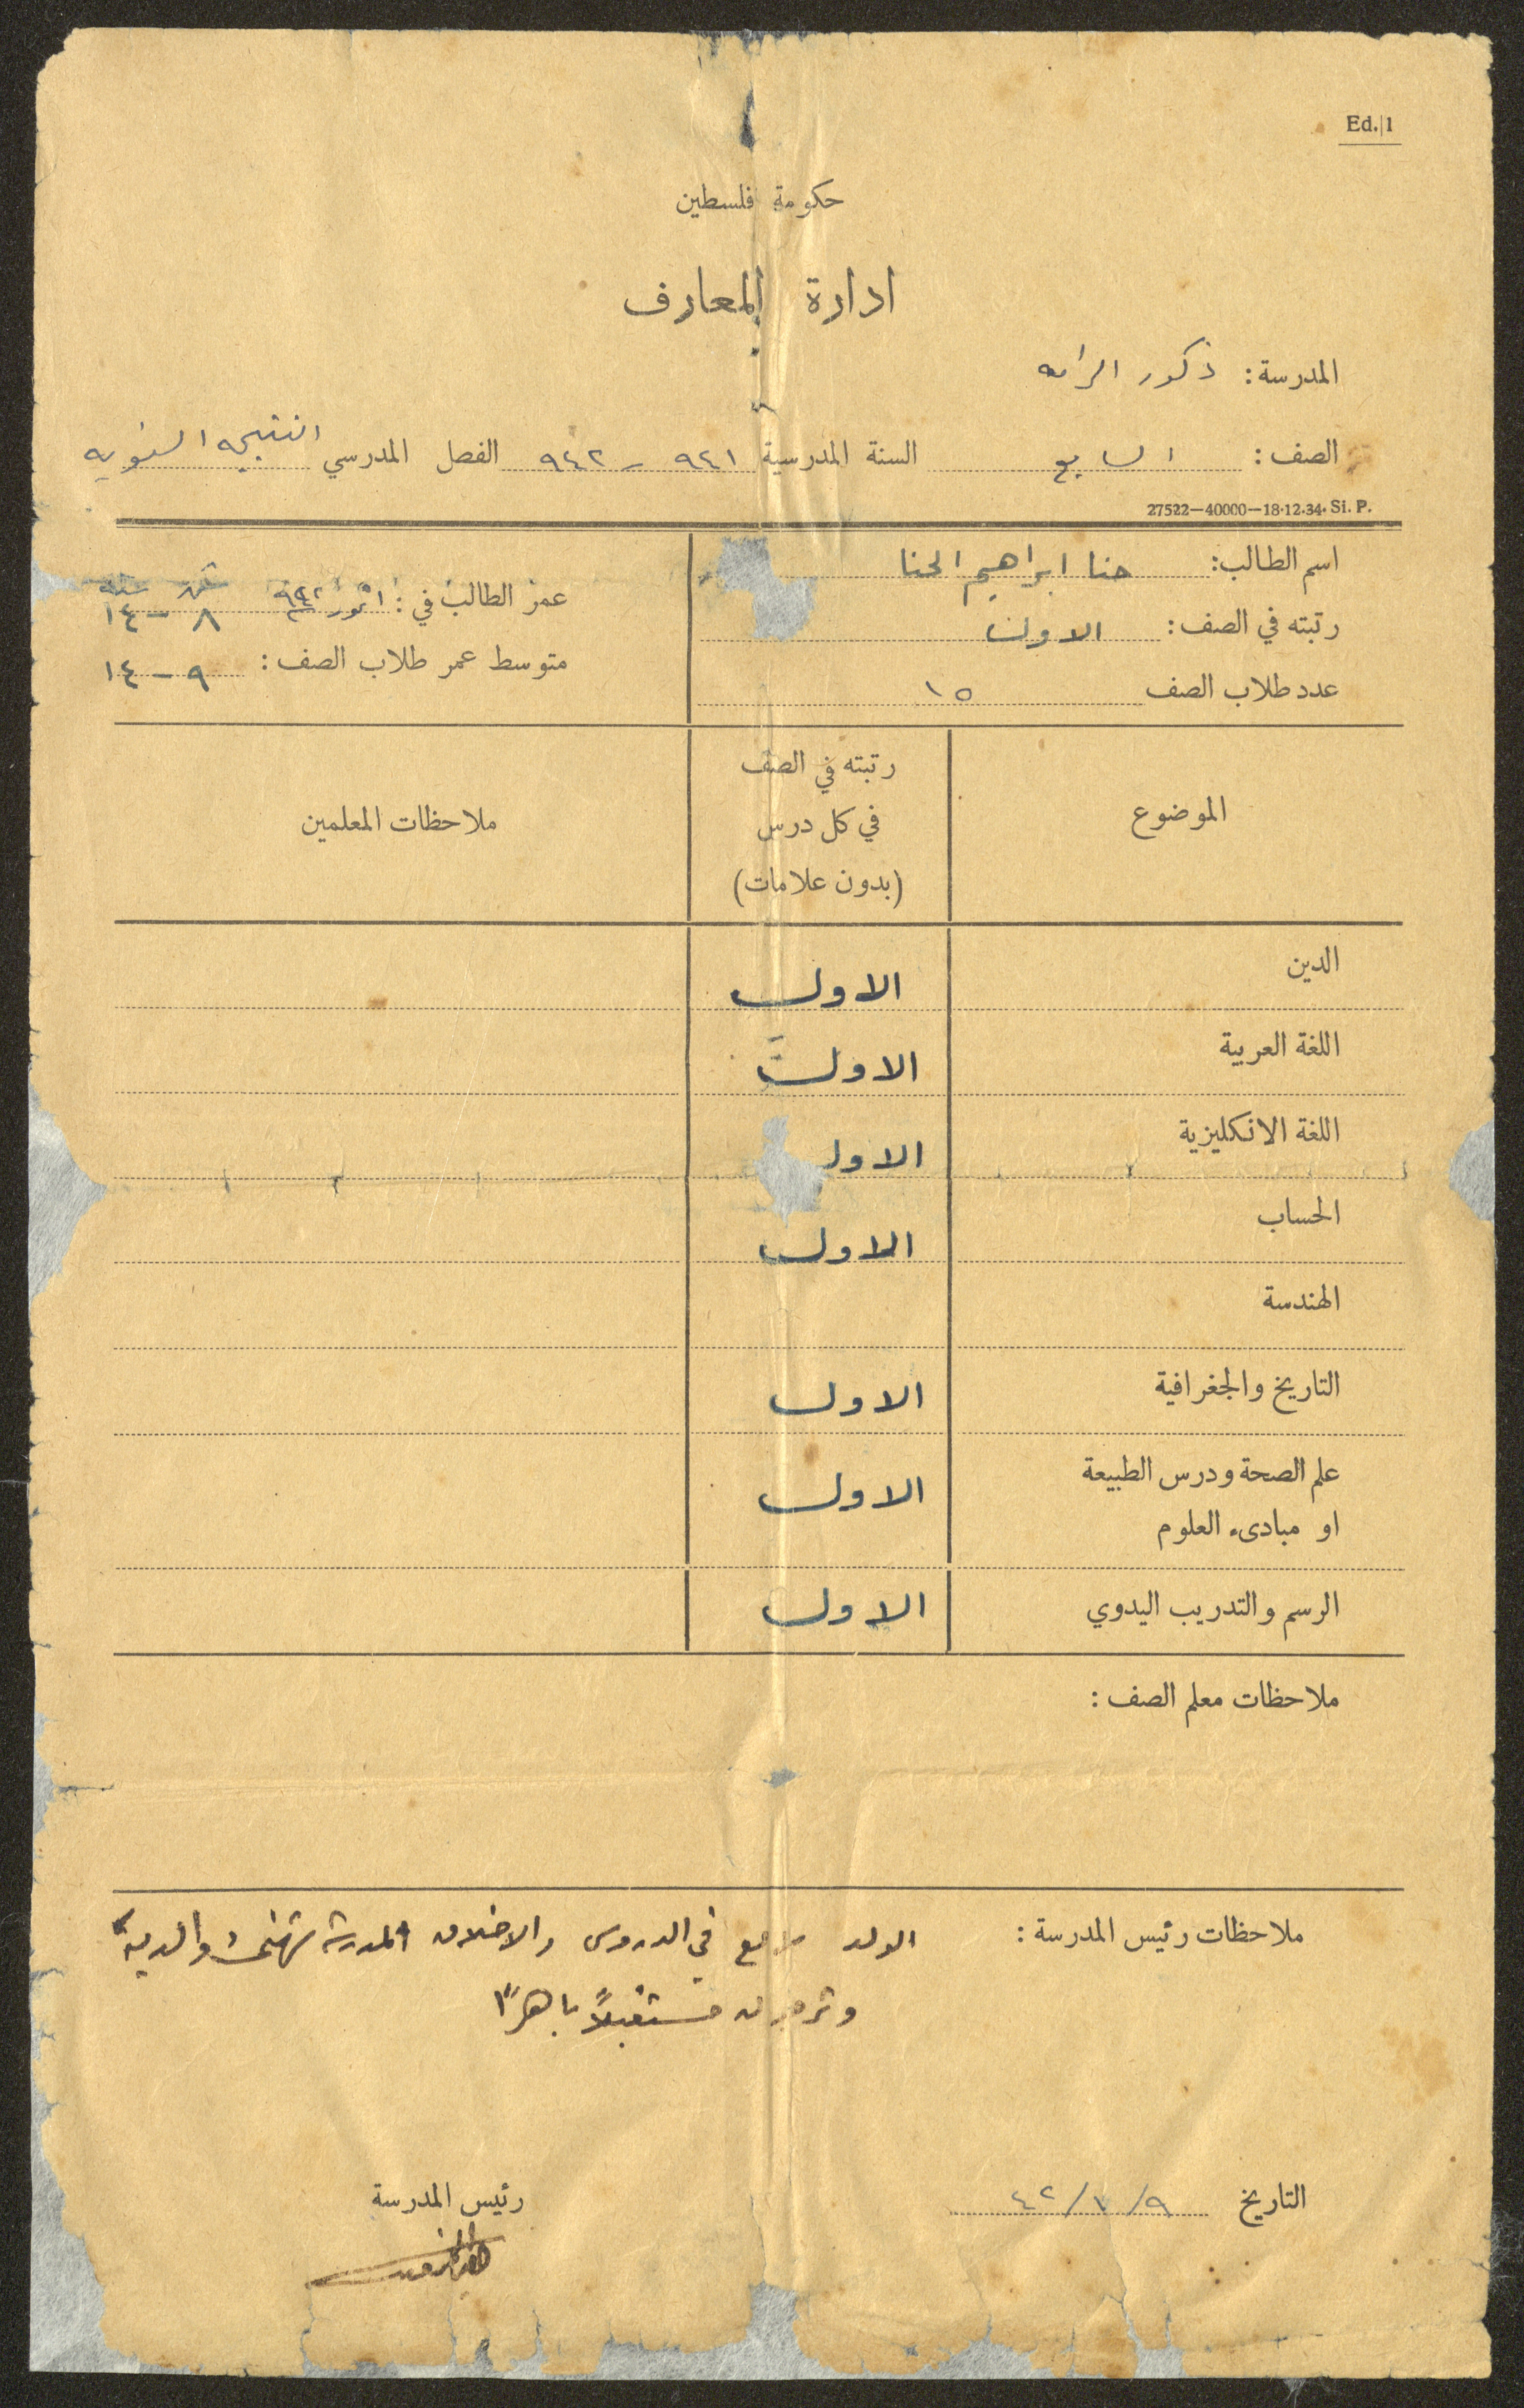 Ed./1
حكومة فلسطين
ادارة المعارف
المدرسة: ذكور الرامه
الصف: السابع السنة المدرسية ٩٤١ – ٩٤٢ الفصل المدرسي النتيجه السنويه
27522—40000—18.12.34. Si. P.
اسم الطالب: حنا ابراهيم الحنا
رتبته في الصف: الاول
عدد طلاب الصف ١٥
عمر الطالب في: ١ تموز ٩٤٢ شهر سنه ٨ – ١٤
متوسط عمر طلاب الصف: ٩ – ١٤
الموضوع
رتبته في الصف
في كل درس
(بدون علامات)
ملاحظات المعلمين
الدين الاول
اللغة العربية الاول
اللغة الانكليزية الاول
الحساب الاول
الهندسة
التاريخ والجغرافية الاول
علم الصحة ودرس الطبيعة الاول
او مبادىء العلوم
الرسم والتدريب اليدوي الاول
ملاحظات معلم الصف:
ملاحظات رئيس المدرسة: الولد في الدروس والاخلاق المدرسة تهنئ والديه
وترجو له مستقبلاً باهراً
التاريخ ٩/٧/٤٢
رئيس المدرسة